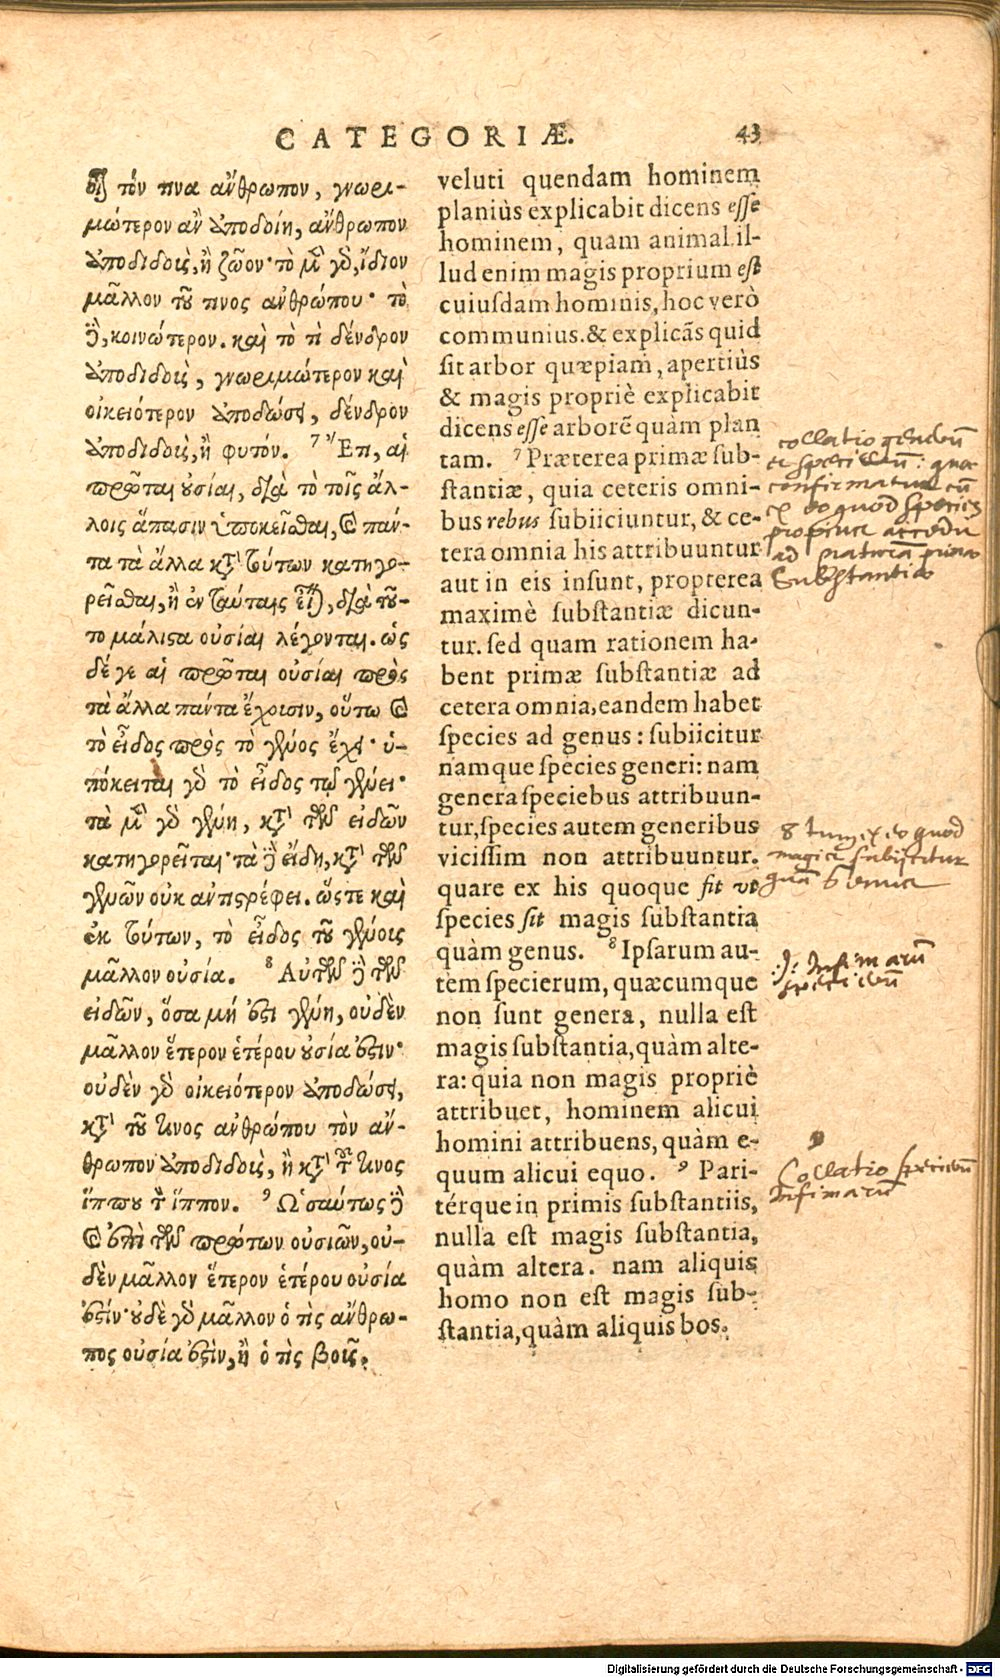 CATEGORIÆ. 43
τόν τινα ἄνθρωπον, γνωρι-
μώτερον ἂν ἀποδοίη, ἄνθρωπον
ἀποδιδοὺς, ἢ ζῶον· τὸ μὲν γὸ, ἴδιον
μᾶλλον τοῦ τινὸς ἀνθρώπου· τὸ
δὲ, κοινώτερον. καὶ τὸ τὶ δένδρον
ἀποδιδοὺς, γνωριμώτερον καὶ
οἰκειότερον ἀποδώσει, δένδρον
ἀποδιδοὺς, ἢ φυτόν. 7 Ἔτι, αἱ
πρῶται οὐσίαι, διὰ τὸ τοῖς ἄλ-
λοις ἅπασιν ὑποκεῖσθαι, καὶ πάν-
τα τὰ ἄλλα κατὰ τούτων κατηγο-
ρεῖσθαι, ἢ ἐν ταύταις εἶναι, διὰ τοῦ-
το μάλιστα οὐσίαι λέγονται. ὡς
δέ γε αἱ πρῶται οὐσίαι πρὸς
τὰ ἄλλα πάντα ἔχουσιν, οὕτω καὶ
τὸ εἶδος πρὸς τὸ γένος ἔχει· ὑ-
πόκειται γὸ τὸ εἶδος τῷ γένει·
τὰ μὲν γὸ γένη, κατὰ τῶν εἰδῶν
κατηγορεῖται· τὰ δὲ εἴδη, κατὰ τῶν
γενῶν οὐκ ἀντιστρέφει. ὥστε καὶ
ἐκ τούτων, τὸ εἶδος τοῦ γένους
μᾶλλον οὐσία. 8 Αὐτῶν δὲ τῶν
εἰδῶν, ὅσα μή ἐστι γένη, οὐδὲν
μᾶλλον ἕτερον ἑτέρου οὐσία ἐστίν·
οὐδὲν γὸ οἰκειότερον ἀποδώσει,
κατὰ τοῦ τινὸς ἀνθρώπου τὸν ἄν-
θρωπον ἀποδιδοὺς, ἢ κατὰ τοῦ τινὸς
ἵππου τὸν ἵππον. 9 Ὡσαύτως δὲ
καὶ ἐπὶ τῶν πρώτων οὐσιῶν, οὐ-
δὲν μᾶλλον ἕτερον ἑτέρου οὐσία
ἐστίν· οὐδὲ γὸ μᾶλλον ὁ τὶς ἄνθρω-
πος οὐσία ἐστὶν, ἢ ὁ τὶς βοῦς.
veluti quendam hominem
planiùs explicabit dicens esse
hominem, quam animal. il-
lud enim magis proprium est
cuiusdam hominis, hoc verò
communius. & explicãs quid
sit arbor quæpiam, apertiùs
& magis propriè explicabit
dicens esse arborẽ quàm plan
tam. 7 Præterea primæ sub-
stantiæ, quia ceteris omni-
bus rebus subiiciuntur, & ce-
tera omnia his attribuuntur
aut in eis insunt, propterea
maximè substantiæ dicun-
tur. sed quam rationem ha-
bent primæ substantiæ ad
cetera omnia, eandem habet
species ad genus: subiicitur
namque species generi: nam
genera speciebus attribuun-
tur, species autem generibus
vicissim non attribuuntur.
quare ex his quoque fit vt
species sit magis substantia
quàm genus. 8 Ipsarum au-
tem specierum, quæcumque
non sunt genera, nulla est
magis substantia, quàm alte-
ra: quia non magis propriè
attribuet, hominem alicui
homini attribuens, quàm e-
quum alicui equo. 9 Pari-
térque in primis substantiis,
nulla est magis substantia,
quàm altera. nam aliquis
homo non est magis sub-
stantia, quàm aliquis bos.
collatio generũ
et specierũ: quae
confirmatur cũ
ex eo quod species
propius accedũt
ad naturã primae
substantiae
8 tum ex eo quod
magis subijcitur
quam genus
.i. infimarũ
specierũ
Collatio specierũ
infimarũ
Digitalisierung gefördert durch die Deutsche Forschungsgemeinschaft - DFG